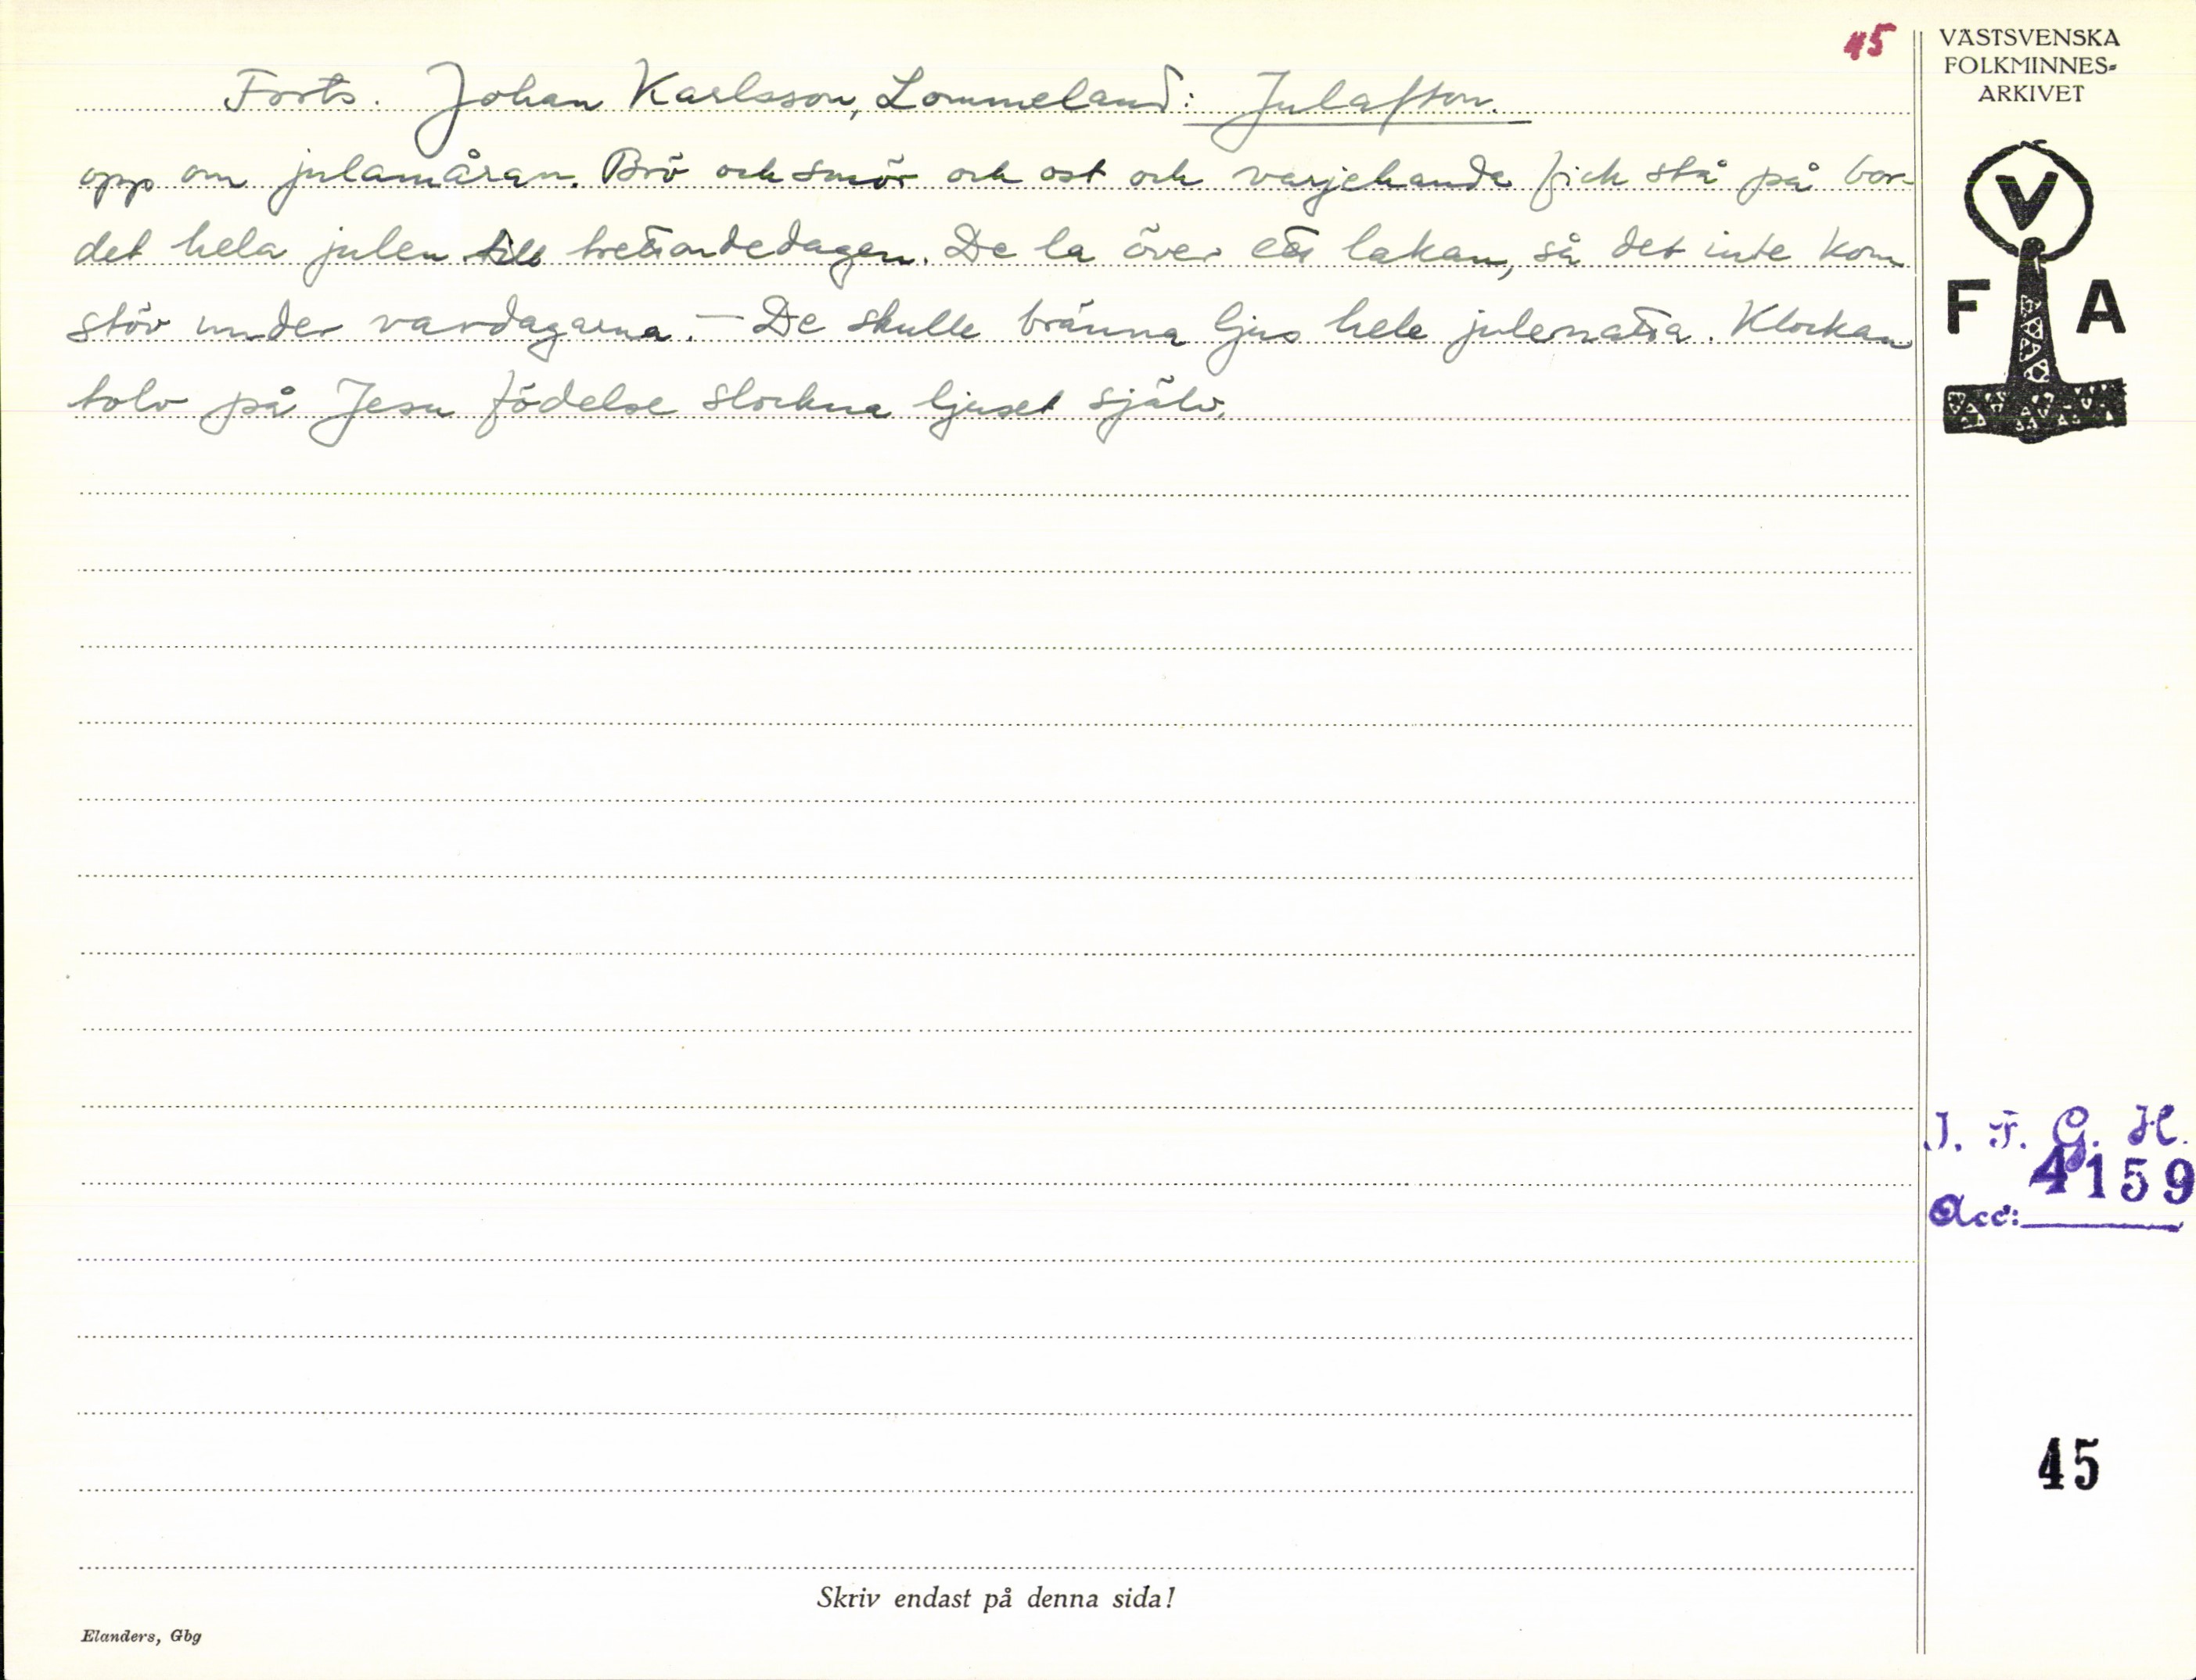 45
VÄSTSVENSKA
FOLKMINNES-
ARKIVET
Forts. Johan Karlsson, Lommeland: Julafton.
opp om julamåran. Brö och smör och ost och varjehanda fick stå på bor-
det hela julen till trettondedagen. De la över ett lakan, så det inte kom
stöv under vardagarna. – De skulle bränna ljus hele julenatta. Klockan
tolv på Jesu födelse slockna ljuset själv.
V
F A
I. F. G. H.
4159
Acc:
45
Skriv endast på denna sida!
Elanders, Gbg